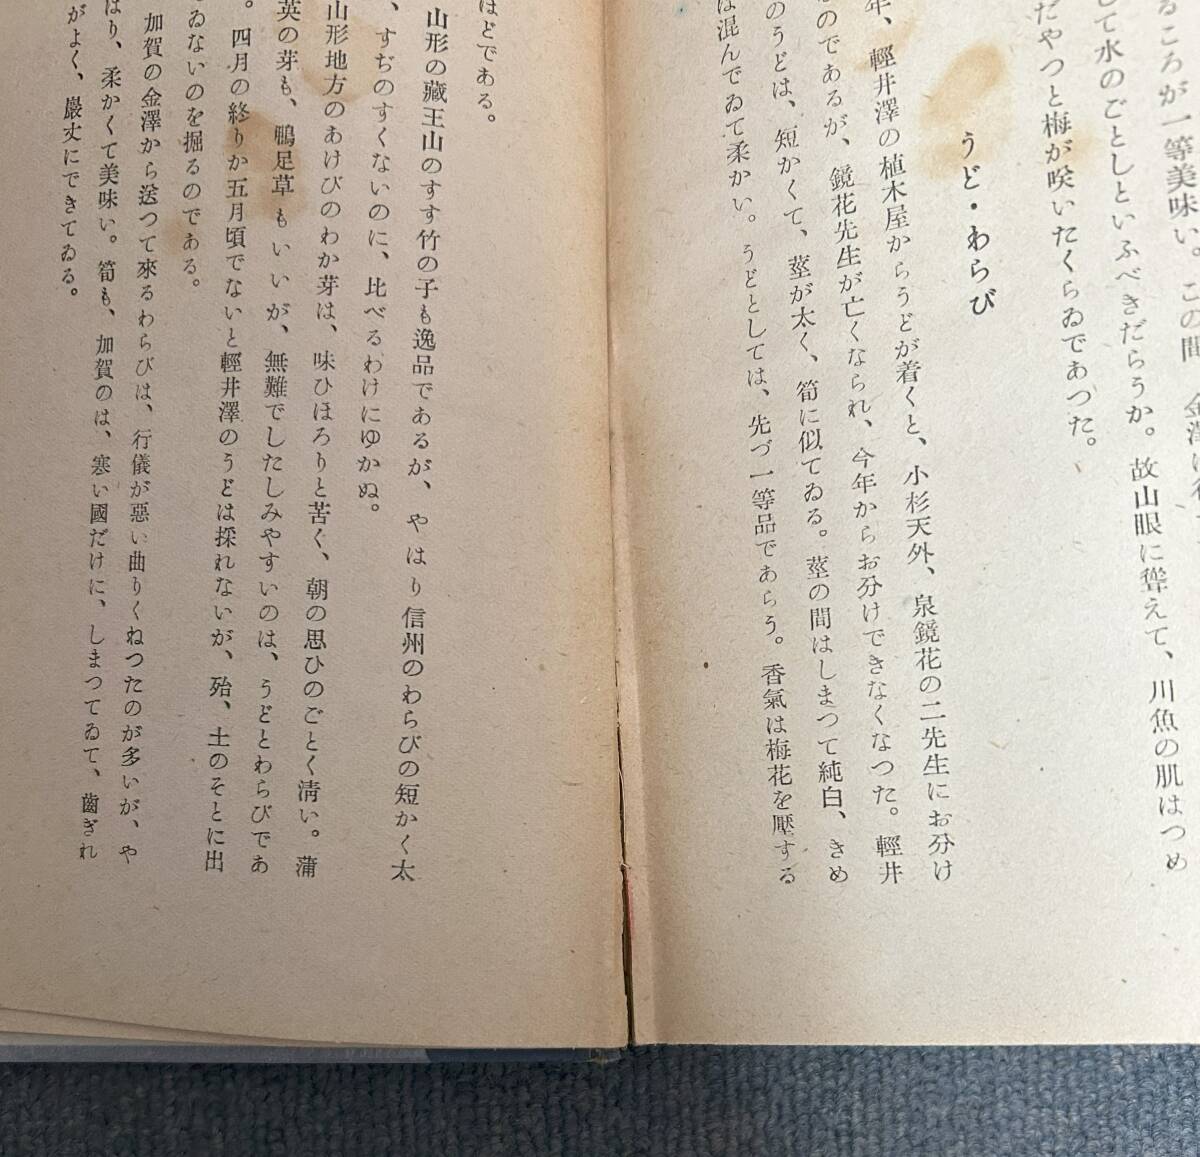 るころが一等美味い。この間、金澤
して水のごとしといふべきだらうか。故山眼に聳えて、川魚の肌はつめ
だやつと梅が咲いたくらゐであつた。
うど・わらび
年、輕井澤の植木屋からうどが着くと、小杉天外、泉鏡花の二先生にお分け
のであるが、鏡花先生が亡くなられ、今年からお分けできなくなつた。輕井
のうどは、短かくて、莖が太く、筍に似てゐる。莖の間はしまつて純白、きめ
は混んでゐて柔かい。うどとしては、先づ一等品であらう。香氣は梅花を壓する
ほどである。
山形の藏王山のすす竹の子も逸品であるが、やはり信州のわらびの短かく太
、すぢのすくないのに、比べるわけにゆかぬ。
山形地方のあけびのわか芽は、味ひほろりと苦く、朝の思ひのごとく淸い。蒲
英の芽も、鴨足草もいいが、無難でしたしみやすいのは、うどとわらびであ
。四月の終りか五月頃でないと輕井澤のうどは採れないが、殆、土のそとに出
ゐないのを掘るのである。
加賀の金澤から送つて來るわらびは、行儀が惡い曲りくねつたのが多いが、や
はり、柔かくて美味い。筍も、加賀のは、寒い國だけに、しまつてゐて、齒ぎれ
がよく、巖丈にできてゐる。